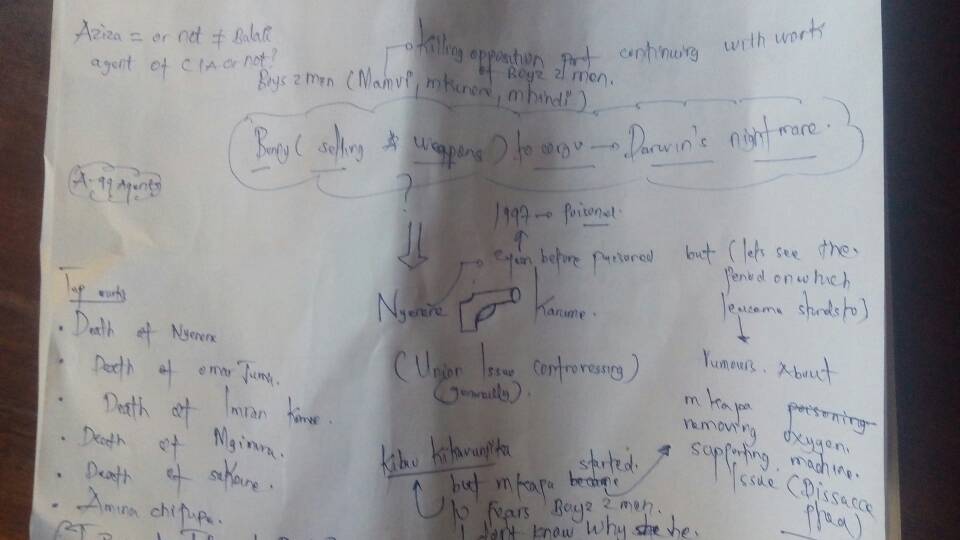 Aziza = or not ≠ Balali
agent of CIA or not?
Killing opposition and continuing with works
of Boyz 2 men.
Boys 2 men (Mamvi, mkurere, mhindi)
Benny (selling weapons) to congo → Darwin's nightmare.
A-99 Agents
?
1997 → poisoned.
again before poisoned
but (lets see the
period on which
leucamo stands to)
Nyerere
Karume.
(Union Issue controversing)
(generally).
rumours. About
mkapa poisoning
removing oxygen
supporting machine.
Issue (Dissacce
phaa)
Top works
• Death of Nyerere
• Death of omar Juma.
• Death of Imran Kombe.
• Death of
• Death of sokoine.
• Amina chifupa.
Kitau kitavunjika
but mkapa became started.
to fears Boyz 2 men.
I don't know why she he.